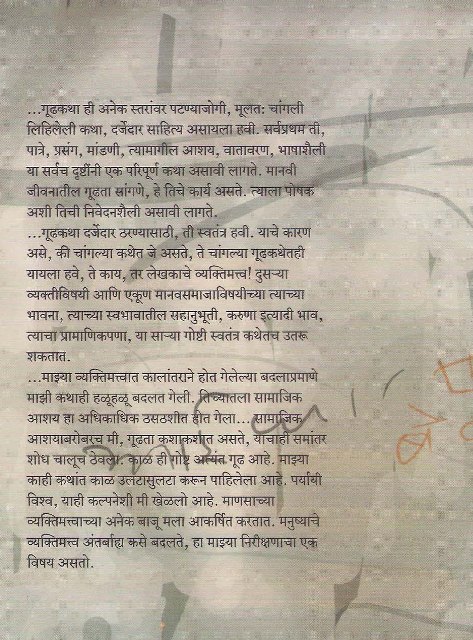 ...गूढकथा ही अनेक स्तरांवर पटण्याजोगी, मूलत: चांगली
लिहिलेली कथा, दर्जेदार साहित्य असायला हवी. सर्वप्रथम ती,
पात्रे, प्रसंग, मांडणी, त्यामागील आशय, वातावरण, भाषाशैली
या सर्वच दृष्टींनी एक परिपूर्ण कथा असावी लागते. मानवी
जीवनातील गूढता सांगणे, हे तिचे कार्य असते. त्याला पोषक
अशी तिची निवेदनशैली असावी लागते.
...गूढकथा दर्जेदार ठरण्यासाठी, ती स्वतंत्र हवी. याचे कारण
असे, की चांगल्या कथेत जे असते, ते चांगल्या गूढकथेतही
यायला हवे, ते काय, तर लेखकाचे व्यक्तिमत्त्व! दुसऱ्या
व्यक्तीविषयी आणि एकूण मानवसमाजाविषयीच्या त्याच्या
भावना, त्याच्या स्वभावातील सहानुभूती, करुणा इत्यादी भाव,
त्याचा प्रामाणिकपणा, या साऱ्या गोष्टी स्वतंत्र कथेतच उतरू
शकतात.
...माझ्या व्यक्तिमत्त्वात कालांतराने होत गेलेल्या बदलाप्रमाणे
माझी कथाही हळूहळू बदलत गेली. तिच्यातला सामाजिक
आशय हा अधिकाधिक ठसठशीत होत गेला... सामाजिक
आशयाबरोबरच मी, गूढता कशाकशात असते, याचाही समांतर
शोध चालूच ठेवला. काळ ही गोष्ट अत्यंत गूढ आहे. माझ्या
काही कथांत काळ उलटासुलटा करून पाहिलेला आहे. पर्यायी
विश्व, याही कल्पनेशी मी खेळलो आहे. माणसाच्या
व्यक्तिमत्त्वाच्या अनेक बाजू मला आकर्षित करतात. मनुष्याचे
व्यक्तिमत्त्व अंतर्बाह्य कसे बदलते, हा माझ्या निरीक्षणाचा एक
विषय असतो.